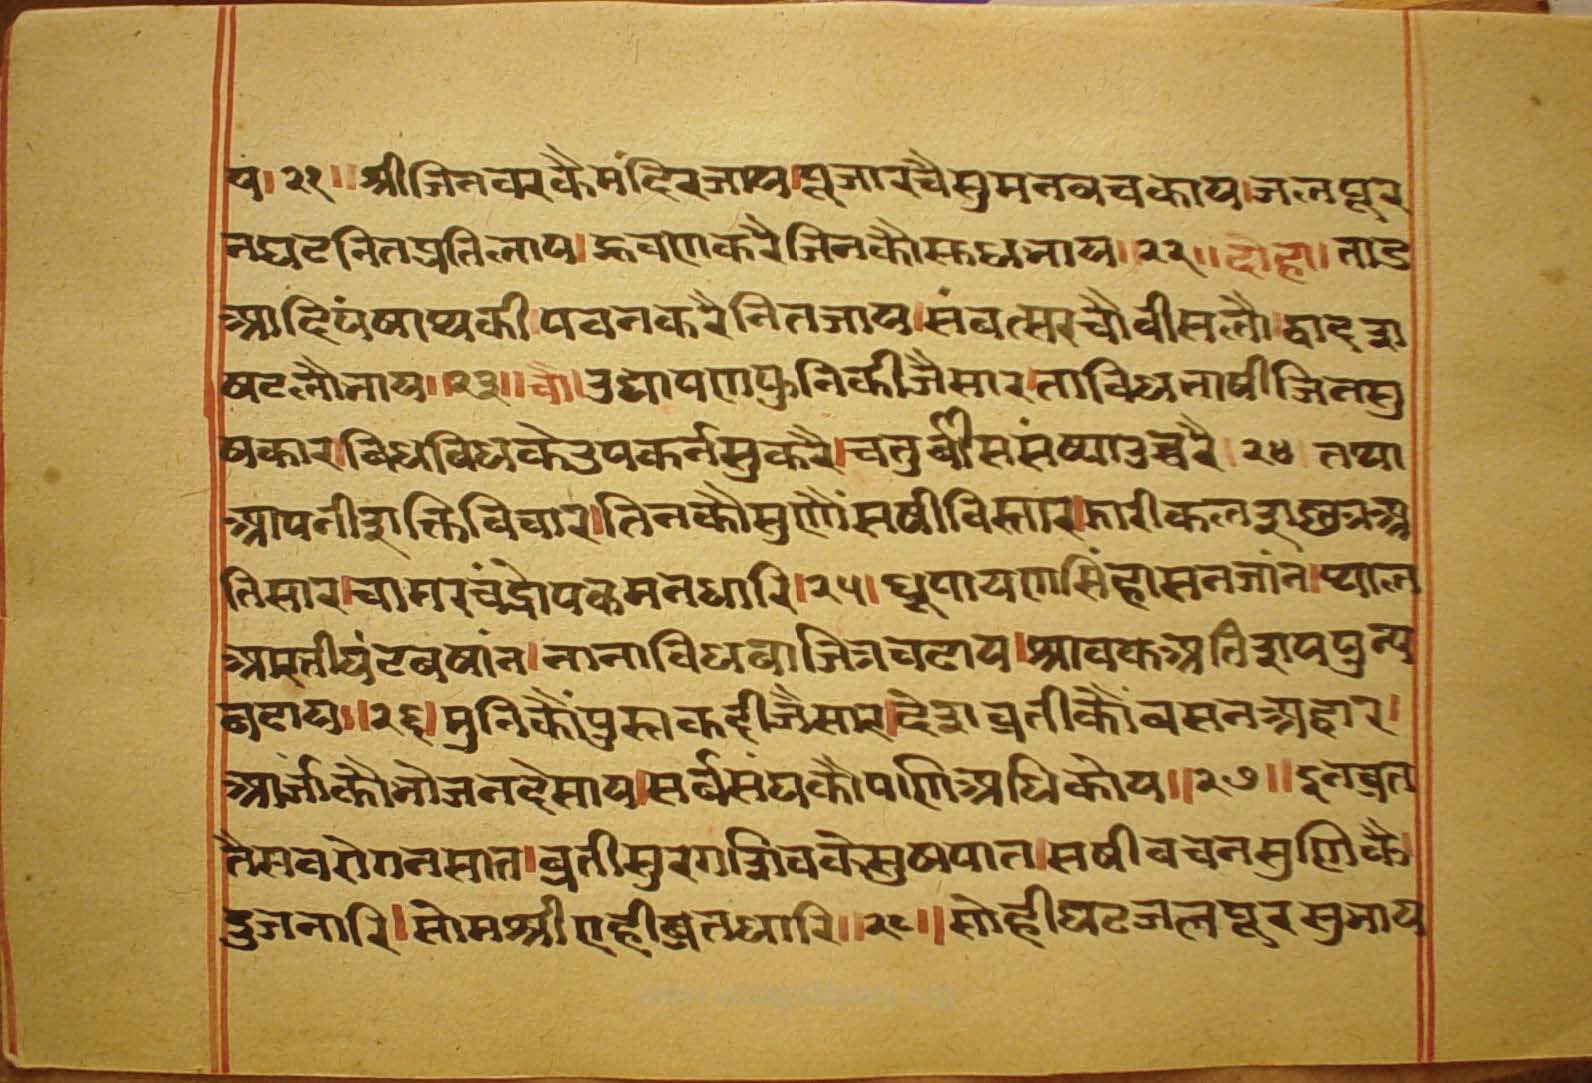 य। २१॥ श्रीजिनवरकै मंदिर जाय। पूजा रचै सु मन वच काय। जल पूर
न घट नित प्रति लाय। न्हवण करै जिनकौ सुभ भाय॥ २२॥ दोहा। ताड
आदि पंषा थकी। पवन करै नित जाय। संवत्सर चौवीस लौ। द्वादश
षट लौ भाय॥ २३॥ चौ। उद्यापण फुनि कीजै सार। ता विध भाषी जिन सु
षकार। विध विध के उपकर्न सु करै। चतुर्वीस संष्या उच्चरै। २४। तथा
आपनी शक्ति विचार। तिनकौ सुणौं सषी विस्तार। झारी कलश छत्र अ
ति सार। चामर चंद्रोपक मन धारि। २५। धूपायण सिंहासन जांन। थाल
आरती घंट बषांन। नाना विध वाजित्र चढाय। श्रावक अतिशय पुन्य
बढाय॥ २६। मुनिकौं पुस्तक दीजै सार। देशव्रतीकौं वसन अहार।
आर्जाकौ भोजन दे साय। सर्व संघकौ पाणि अधिकोय॥ २७॥ इन व्रत
तै सब रोग नसात। व्रती सुरग शिवके सुष पात। सषी वचन सुणिकै
दुज नारि। सोमश्री एही व्रत धारि॥ २८॥ सो ही घट जल पूर सु भाय